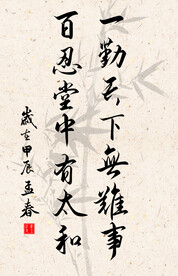 一勤天下無難事
百忍堂中有太和
歲在甲辰孟春